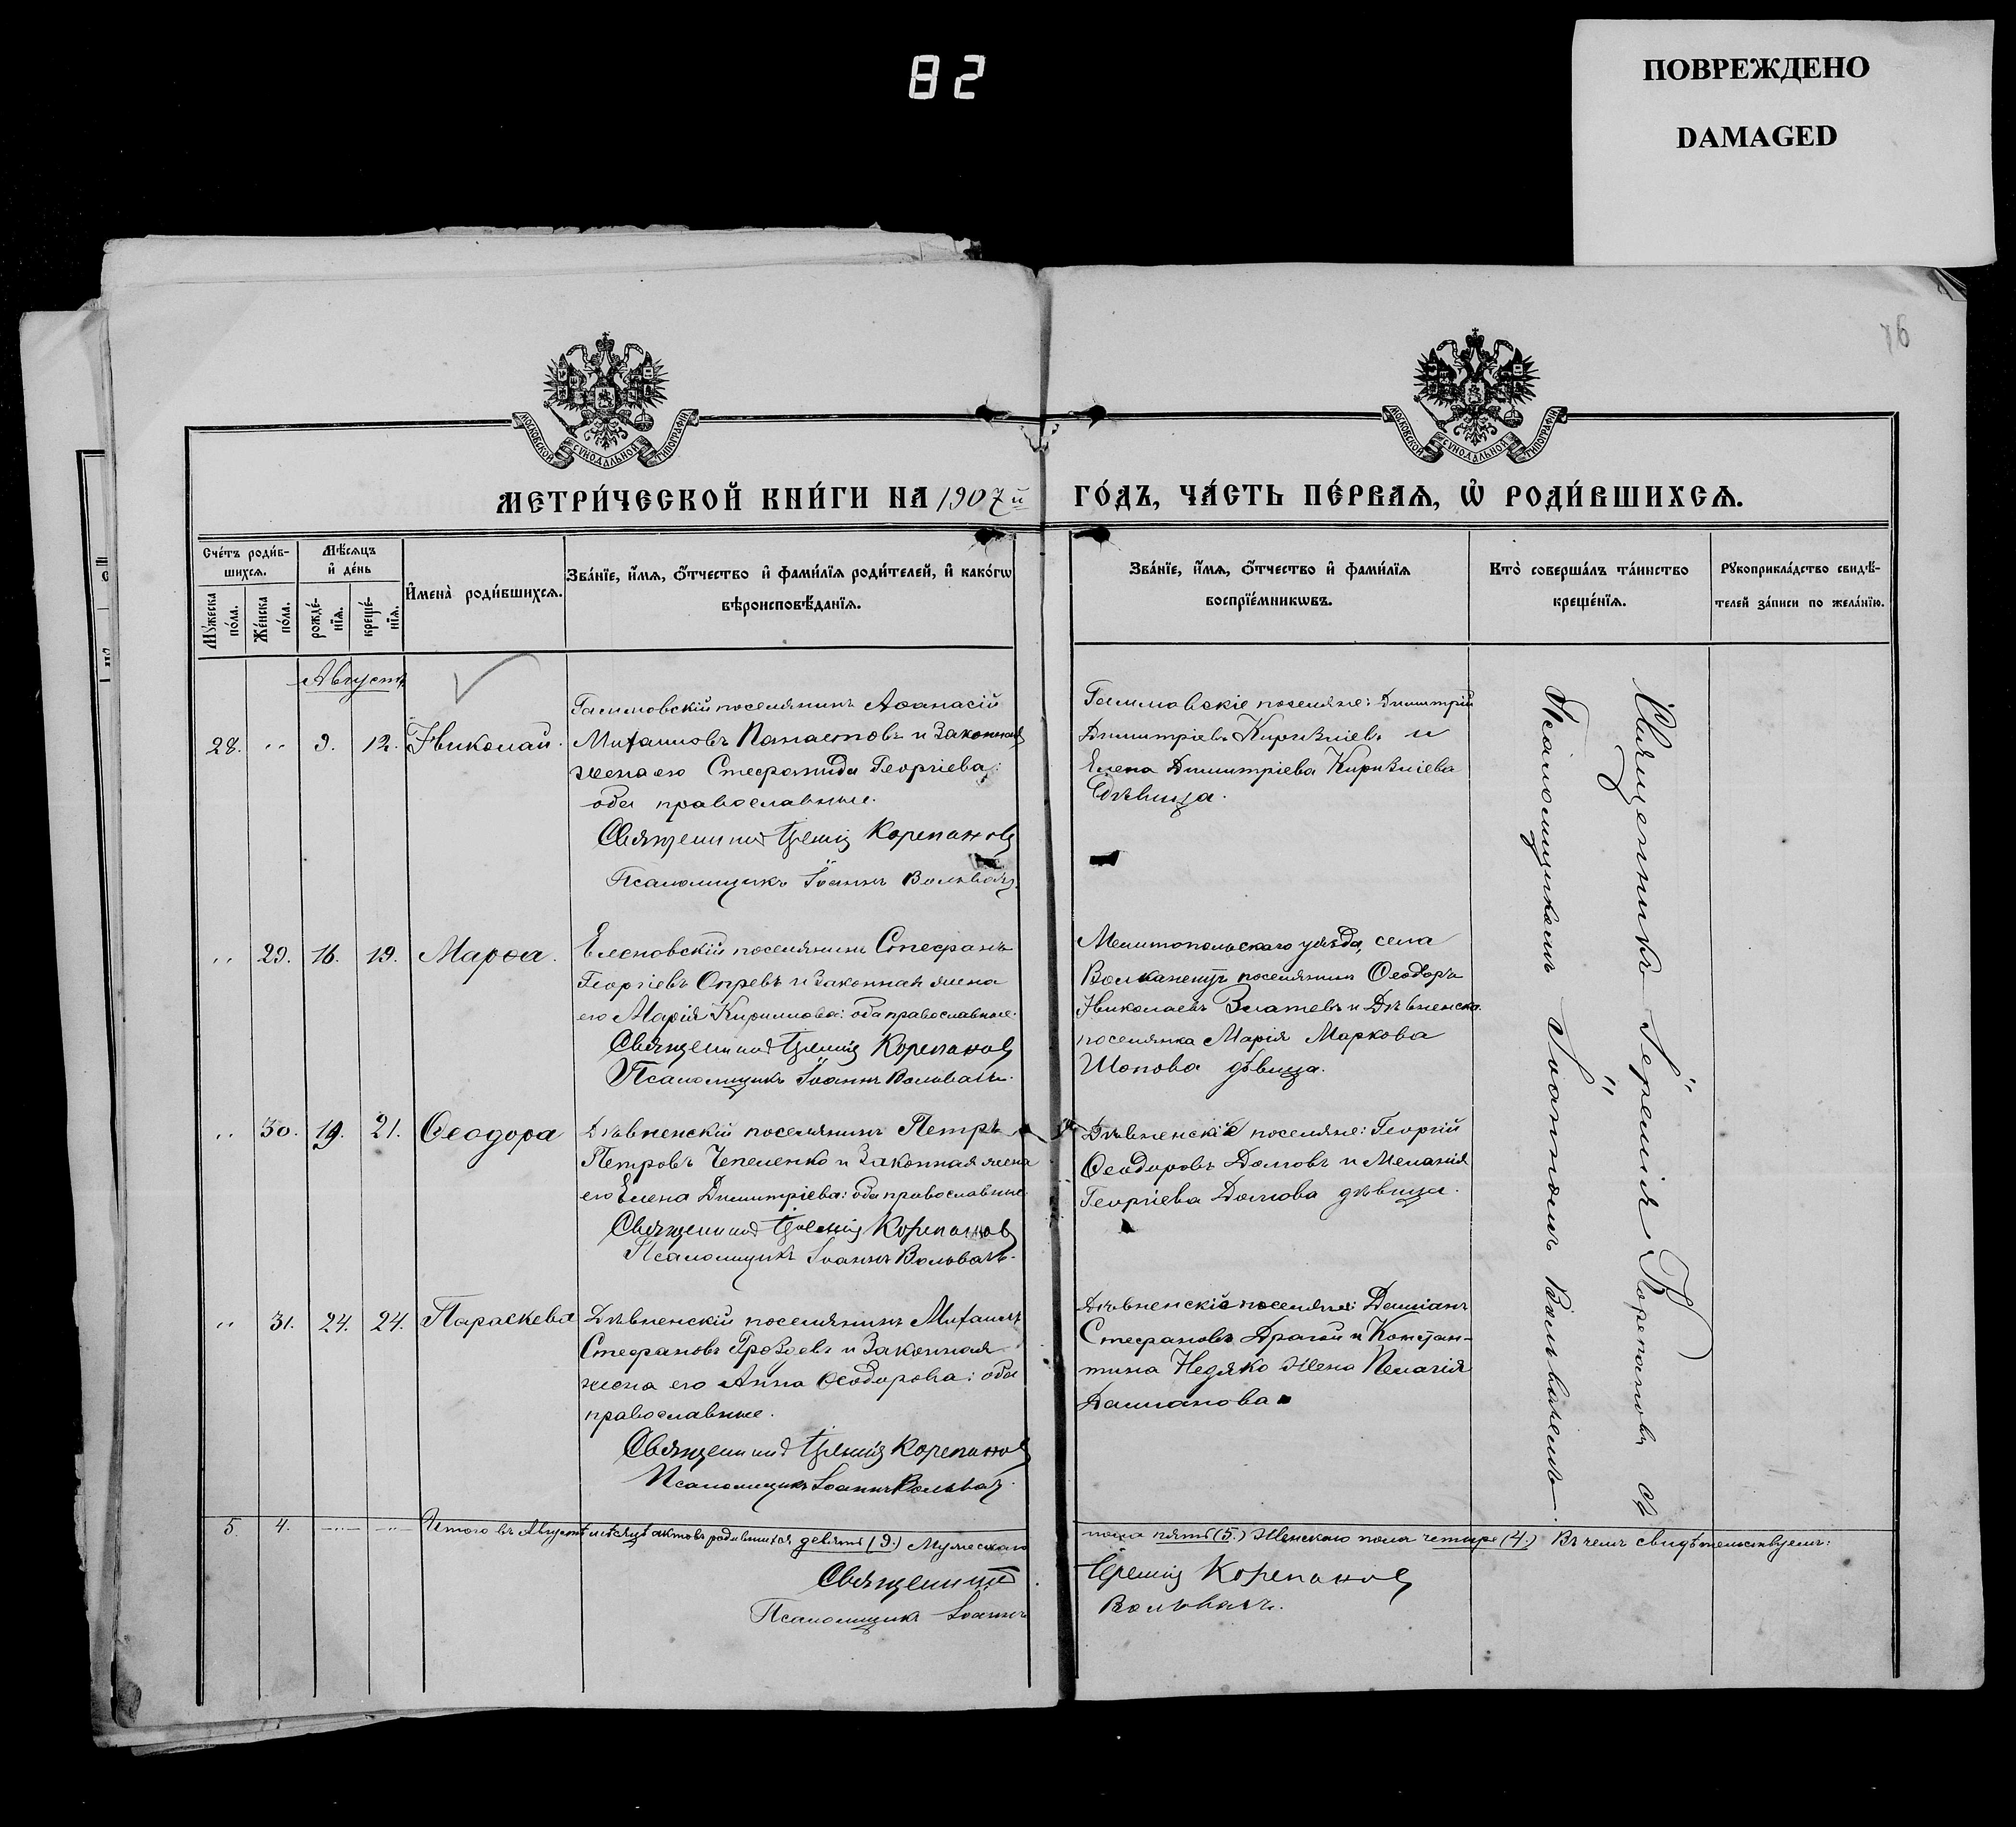 82
ПОВРЕЖДЕНО
DAMAGED
76
МОСКОВСКОЙ СѴНОДАЛЬНОЙ ТИПОГРАФІИ
МОСКОВСКОЙ СѴНОДАЛЬНОЙ ТИПОГРАФІИ
МЕТРИ́ЧЕСКОЙ КНИ́ГИ НА 1907й ГО́ДЪ, ЧА́СТЬ ПЕ́РВАѦ, Ѡ҆ РОДИ́ВШИХСѦ.
Сче́тъ роди́в-
шихсѧ.
Мꙋ́жеска
по́ла.
Же́нска
по́ла.
Мѣ́сѧцъ
и҆ де́нь
рожде́-
нїѧ.
креще́-
нїѧ.
И҆мена̀ роди́вшихсѧ.
Зва́нїе, и҆́мѧ, ѻ҆́тчество и҆ фами́лїѧ роди́телей, и҆ како́гѡ
вѣроисповѣ́данїѧ.
Зва́нїе, и҆́мѧ, ѻ҆́тчество и҆ фами́лїѧ
воспрїе́мникѡвъ.
Кто̀ соверша́лъ та́инство
креще́нїѧ.
Рꙋкоприкла́дство свидѣ́-
телей за́писи по жела́нїю.
Августъ
28. " 9. 12. Николай.
Гаммовскій поселянинъ Аѳанасій
Михаиловъ Папастовъ и законная
жена его Стефанида Георгіева:
оба православные.
Священникъ Іеремія Корепановъ
Псаломщикъ Іоаннъ Вольвачъ.
Гаммовскіе поселяне: Димитрій
Димитріевъ и
Елена Димитріева
дѣвица.
" 29. 16. 19. Марѳа.
Еленовскій поселянинъ Стефанъ
Георгіевъ Опревъ и законная жена
его Марія Кириллова: оба православные.
Священникъ Іеремія Корепановъ
Псаломщикъ Іоаннъ Вольвачъ.
Мелитопольскаго уѣзда, села
поселянинъ Ѳеодоръ
Николаевъ Златевъ и Дѣвненска
поселянка Марія Маркова
Шопова дѣвица.
" 30. 19. 21. Ѳеодора
Дѣвненскій поселянинъ Петръ
Петровъ Чепеленко и законная жена
его Елена Димитріева: оба православные.
Священникъ Іеремія Корепановъ
Псаломщикъ Іоаннъ Вольвачъ.
Дѣвненскіе поселяне: Георгій
Ѳеодоровъ Домовъ и Меланія
Георгіева Домова дѣвица.
" 31. 24. 24. Параскева
Дѣвненскій поселянинъ Михаилъ
Стефановъ Грозовъ и законная
жена его Анна Ѳеодорова: оба
православные.
Священникъ Іеремія Корепановъ
Псаломщикъ Іоаннъ Вольвачъ.
Дѣвненскіе поселяне: Даміанъ
Стефановъ Драгой и Констан-
тина Недяко жена Пелагія
Даміанова
Священникъ Іеремія Корепановъ съ
Псаломщикомъ Іоанномъ Вольвачемъ.
5. 4. Итого въ Августѣ мѣсяцѣ актовъ родившихся девять (9.) Мужескаго пола пять (5.) Женскаго пола четыре (4.) Въ чемъ свидѣтельствуемъ:
Священникъ Іеремія Корепановъ
Псаломщикъ Іоаннъ Вольвачъ.